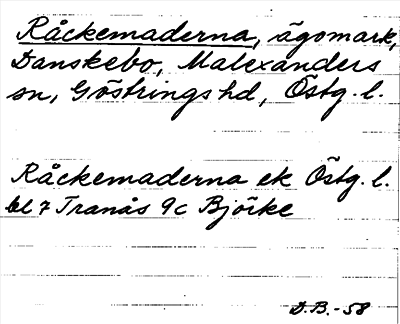 Råckemaderna, ägomark,
Danskebo, Malexanders
sn, Göstrings hd, Östg. l.
Råckemaderna ek Östg. l.
bl 7 Tranås 9c Bjöike
D.B.-58